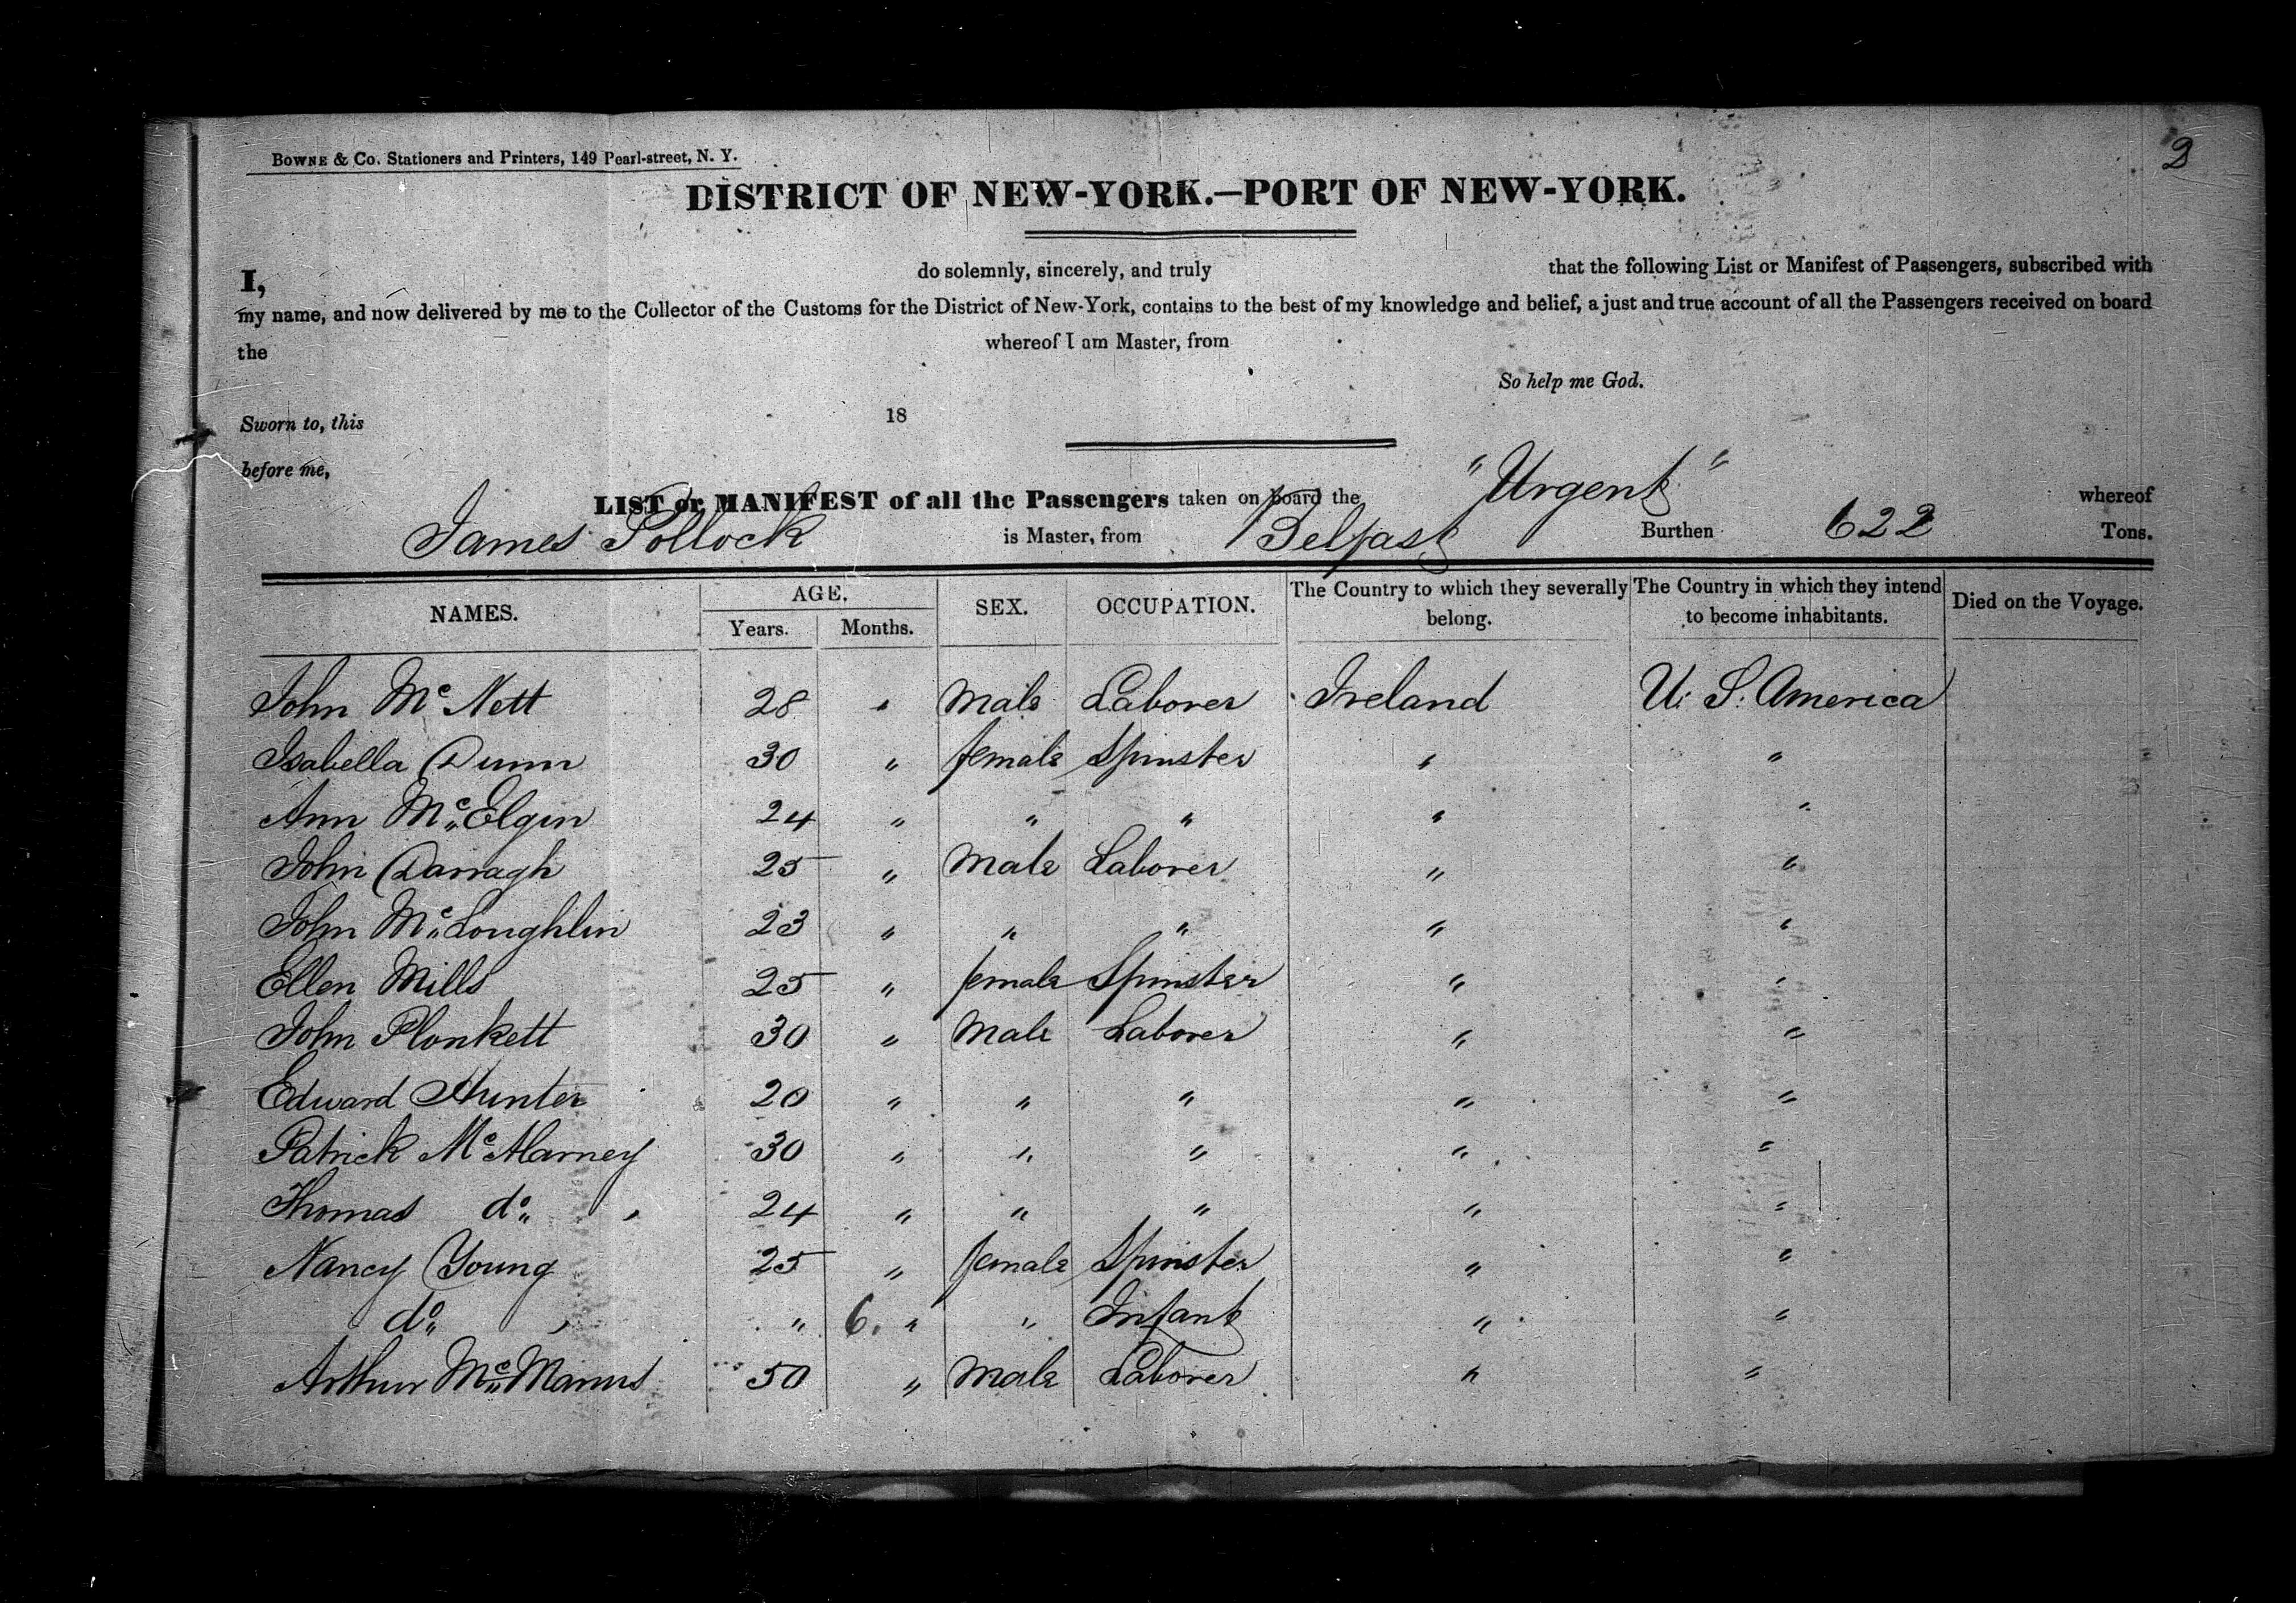 2
BOWNE & CO. Stationers and Printers, 149 Pearl-street, N. Y.
DISTRICT OF NEW-YORK.—PORT OF NEW-YORK.
I, do solemnly, sincerely, and truly that the following List or Manifest of Passengers, subscribed with
my name, and now delivered by me to the Collector of the Customs for the District of New-York, contains to the best of my knowledge and belief, a just and true account of all the Passengers received on board
the whereof I am Master, from
So help me God.
Sworn to, this 18
before me,
LIST or MANIFEST of all the Passengers taken on board the "Urgent" whereof
James Pollock is Master, from Belfast Burthen 622 Tons.
NAMES. AGE. Years. Months. SEX. OCCUPATION. The Country to which they severally belong. The Country in which they intend to become inhabitants. Died on the Voyage.
John Mc Nett 28 " Male Laborer Ireland U. S. America
Isabella Dunn 30 " female Spinster " "
Ann Mc Elgin 24 " " " " "
John Darragh 25 " Male Laborer " "
John Mc Loughlin 23 " " " " "
Ellen Mills 25 " female Spinster " "
John Plonkett 30 " Male Laborer " "
Edward Hunter 20 " " " " "
Patrick Mc Alarney 30 " " " " "
Thomas do 24 " " " " "
Nancy Young 25 " female Spinster " "
do " 6. " " Infant " "
Arthur Mc Manus 50 " Male Laborer " "